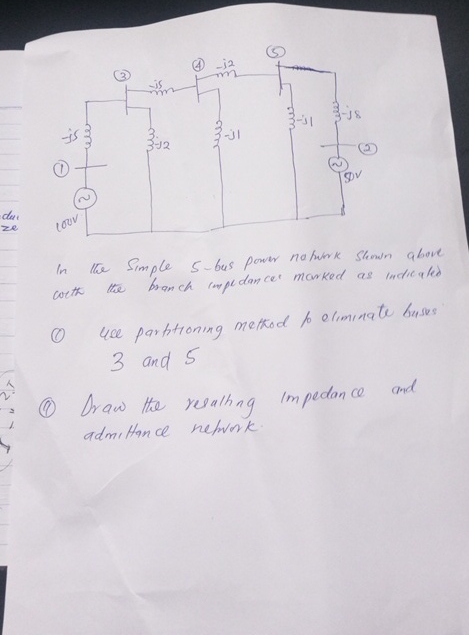 5
4
-j2
3
-j5
-j5
-j2
-j1
-j1
-j8
1
2
50V
100V
In the Simple 5-bus power network shown above
with the branch impedances marked as indicated
Use partitioning method to eliminate buses
3 and 5
Draw the resulting impedance and
admittance network.